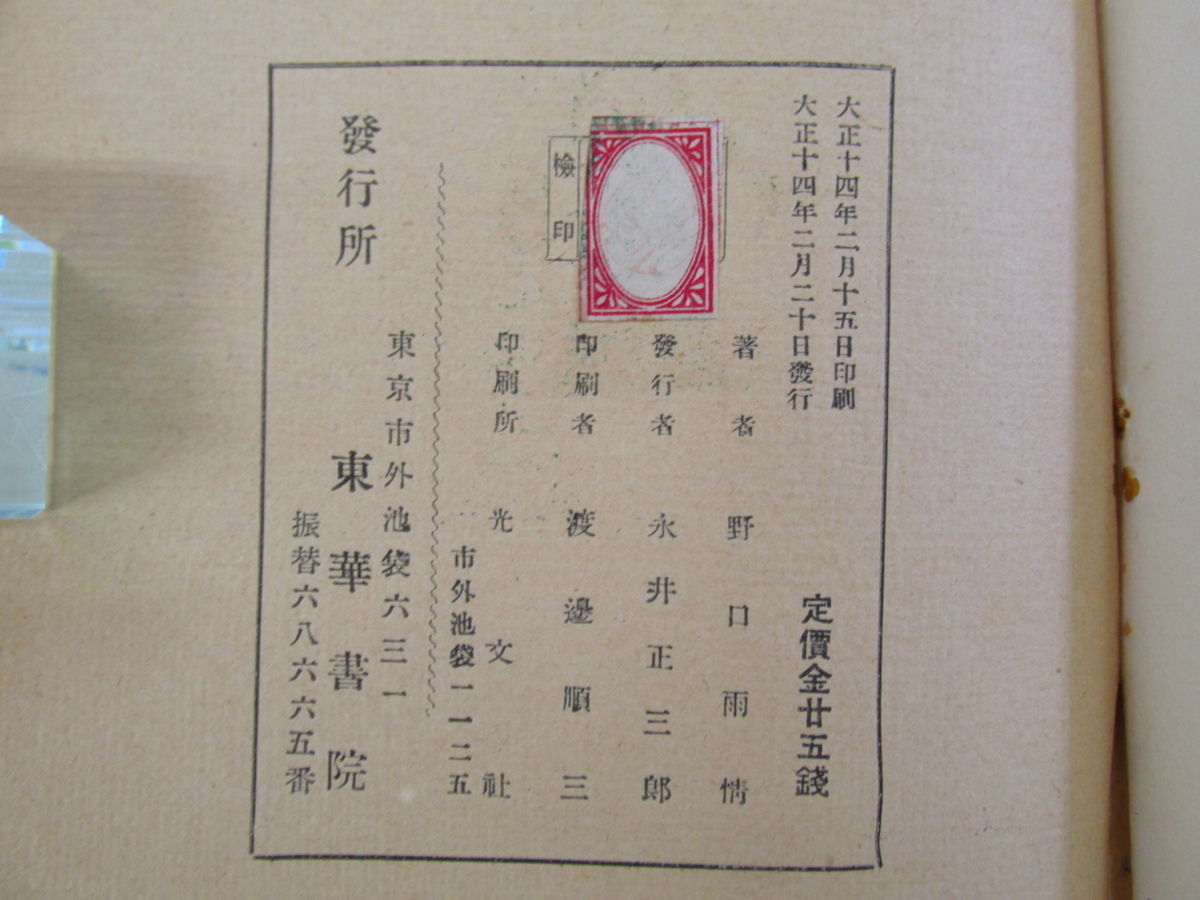 大正十四年二月十五日印刷
大正十四年二月二十日發行
定價金廿五錢
檢印
著者 野口雨情
發行者 永井正三郎
印刷者 渡邊順三
印刷所 光文社
市外池袋一一二五
東京市外池袋六三一
發行所 東華書院
振替六八六六五番